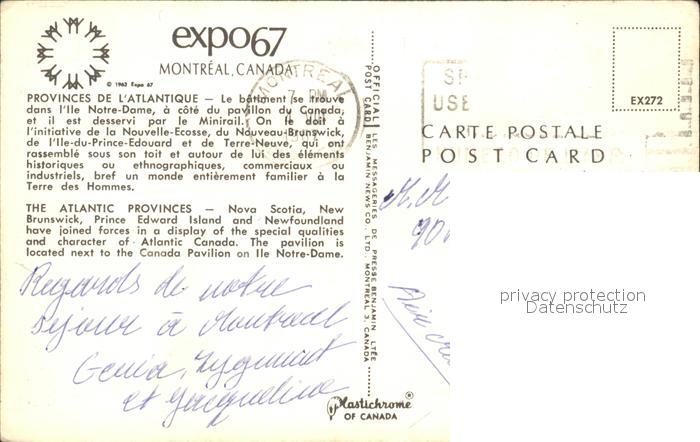 expo67
MONTRÉAL, CANADA
© 1963 Expo 67
PROVINCES DE L'ATLANTIQUE — Le bâtiment se trouve
dans l'Ile Notre-Dame, à côté du pavillon du Canada,
et il est desservi par le Minirail. On le doit à
l'initiative de la Nouvelle-Ecosse, du Nouveau-Brunswick,
de l'Ile-du-Prince-Edouard et de Terre-Neuve, qui ont
rassemblé sous son toit et autour de lui des éléments
historiques ou ethnographiques, commerciaux ou
industriels, bref un monde entièrement familier à la
Terre des Hommes.
THE ATLANTIC PROVINCES — Nova Scotia, New
Brunswick, Prince Edward Island and Newfoundland
have joined forces in a display of the special qualities
and character of Atlantic Canada. The pavilion is
located next to the Canada Pavilion on Ile Notre-Dame.
Regards de notre
séjour à Montreal
Genia, Zygmunt
et Jacqueline
Plastichrome®
OF CANADA
OFFICIAL POST CARD
LES MESSAGERIES DE PRESSE BENJAMIN, LTÉE
BENJAMIN NEWS CO., LTD., MONTREAL 3, CANADA
MONTREAL
7 PM
USE
EX272
CARTE POSTALE
POST CARD
privacy protection
Datenschutz